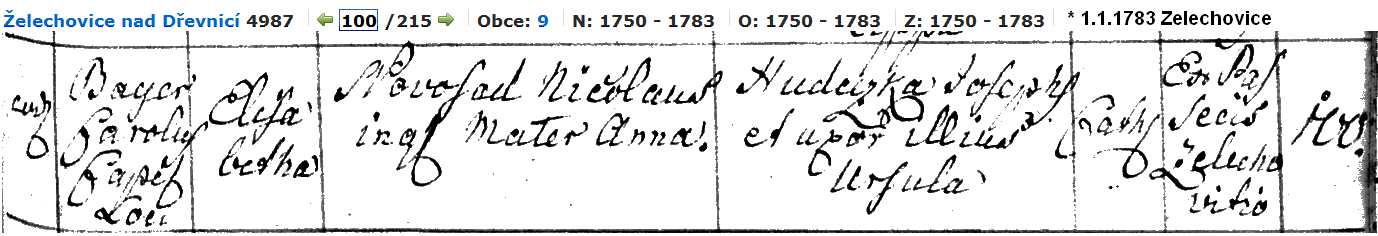 Želechovice nad Dřevnicí 4987 100 /215 Obce: 9 N: 1750 - 1783 O: 1750 - 1783 Z: 1750 - 1783 * 1.1.1783 Zelechovice
Bayer Carolus
Elisa betha
Novosad Nicolaus
inq Mater Anna.
Hudeczka Josephus
et uxor illius
Ursula
Cath
Ex Pas
secis
Zelecho
vitio